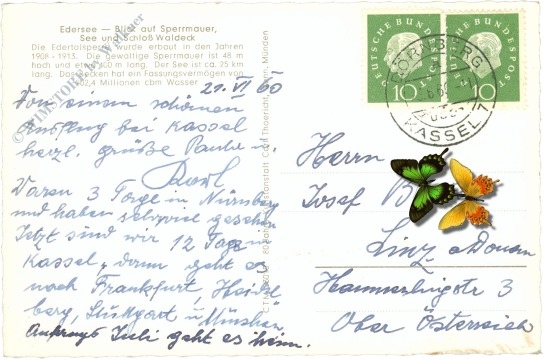 Edersee — Blick auf Sperrmauer,
See und Schloß Waldeck
Die Edertalsperre wurde erbaut in den Jahren
1908 - 1913. Die gewaltige Sperrmauer ist 48 m
hoch und etwa lang. Der See ist ca. 25 km
lang. Das Becken hat ein Fassungsvermögen von
202,4 Millionen cbm Wasser
21. VI 60
Von einem schönen
Ausflug bei Kassel
herzl. Grüße
Karl
Waren 3 Tage in Nürnberg
und haben sehr viel gesehen
Jetzt sind wir 12 Tage in
Kassel, dann geht es
nach Frankfurt, Heidel
berg, Stuttgart u München.
Anfangs Juli geht es heim.
DEUTSCHE BUNDESPOST
10
DEUTSCHE BUNDESPOST
10
KASSEL 7
Herrn
Josef B
Linz a Donau
3
Ober Österreich